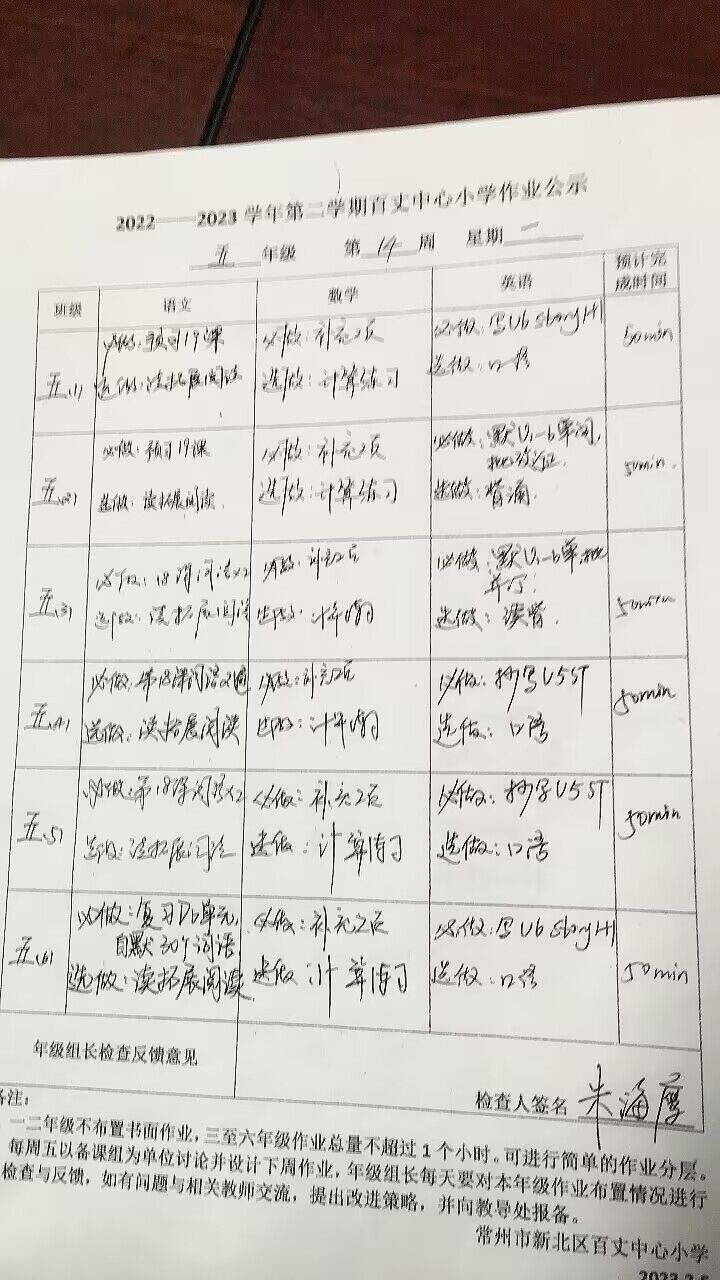 2022——2023学年第二学期百丈中心小学作业公示
五 年级 第 14 周 星期 一
班级 语文 数学 英语 预计完成时间
五(1)
必做:预习19课
选做:读拓展阅读
必做:补充2页
选做:计算练习
必做:写U6 Story
选做:口语
50min
五(2)
必做:预习19课
选做:读拓展阅读
必做:补充2页
选做:计算练习
必做:默 单词,
选做:背诵
50min
五(3)
必做:18课词语×2
选做:读拓展阅读
必做:补充2页
选做:计算练习
必做:默
选做:读背
50min
五(4)
必做:第18课词语2遍
选做:读拓展阅读
必做:补充2页
选做:计算练习
必做:抄写U5ST
选做:口语
50min
五(5)
必做:第18课词语×2
选做:读拓展阅读
必做:补充2页
选做:计算练习
必做:抄写U5ST
选做:口语
50min
五(6)
必做:复习 单元,
自默30个词语
选做:读拓展阅读
必做:补充2页
选做:计算练习
必做:写U6 Story
选做:口语
50min
年级组长检查反馈意见
检查人签名 朱海
备注:
一二年级不布置书面作业,三至六年级作业总量不超过1个小时。可进行简单的作业分层。
每周五以备课组为单位讨论并设计下周作业,年级组长每天要对本年级作业布置情况进行
检查与反馈,如有问题与相关教师交流,提出改进策略,并向教导处报备。
常州市新北区百丈中心小学